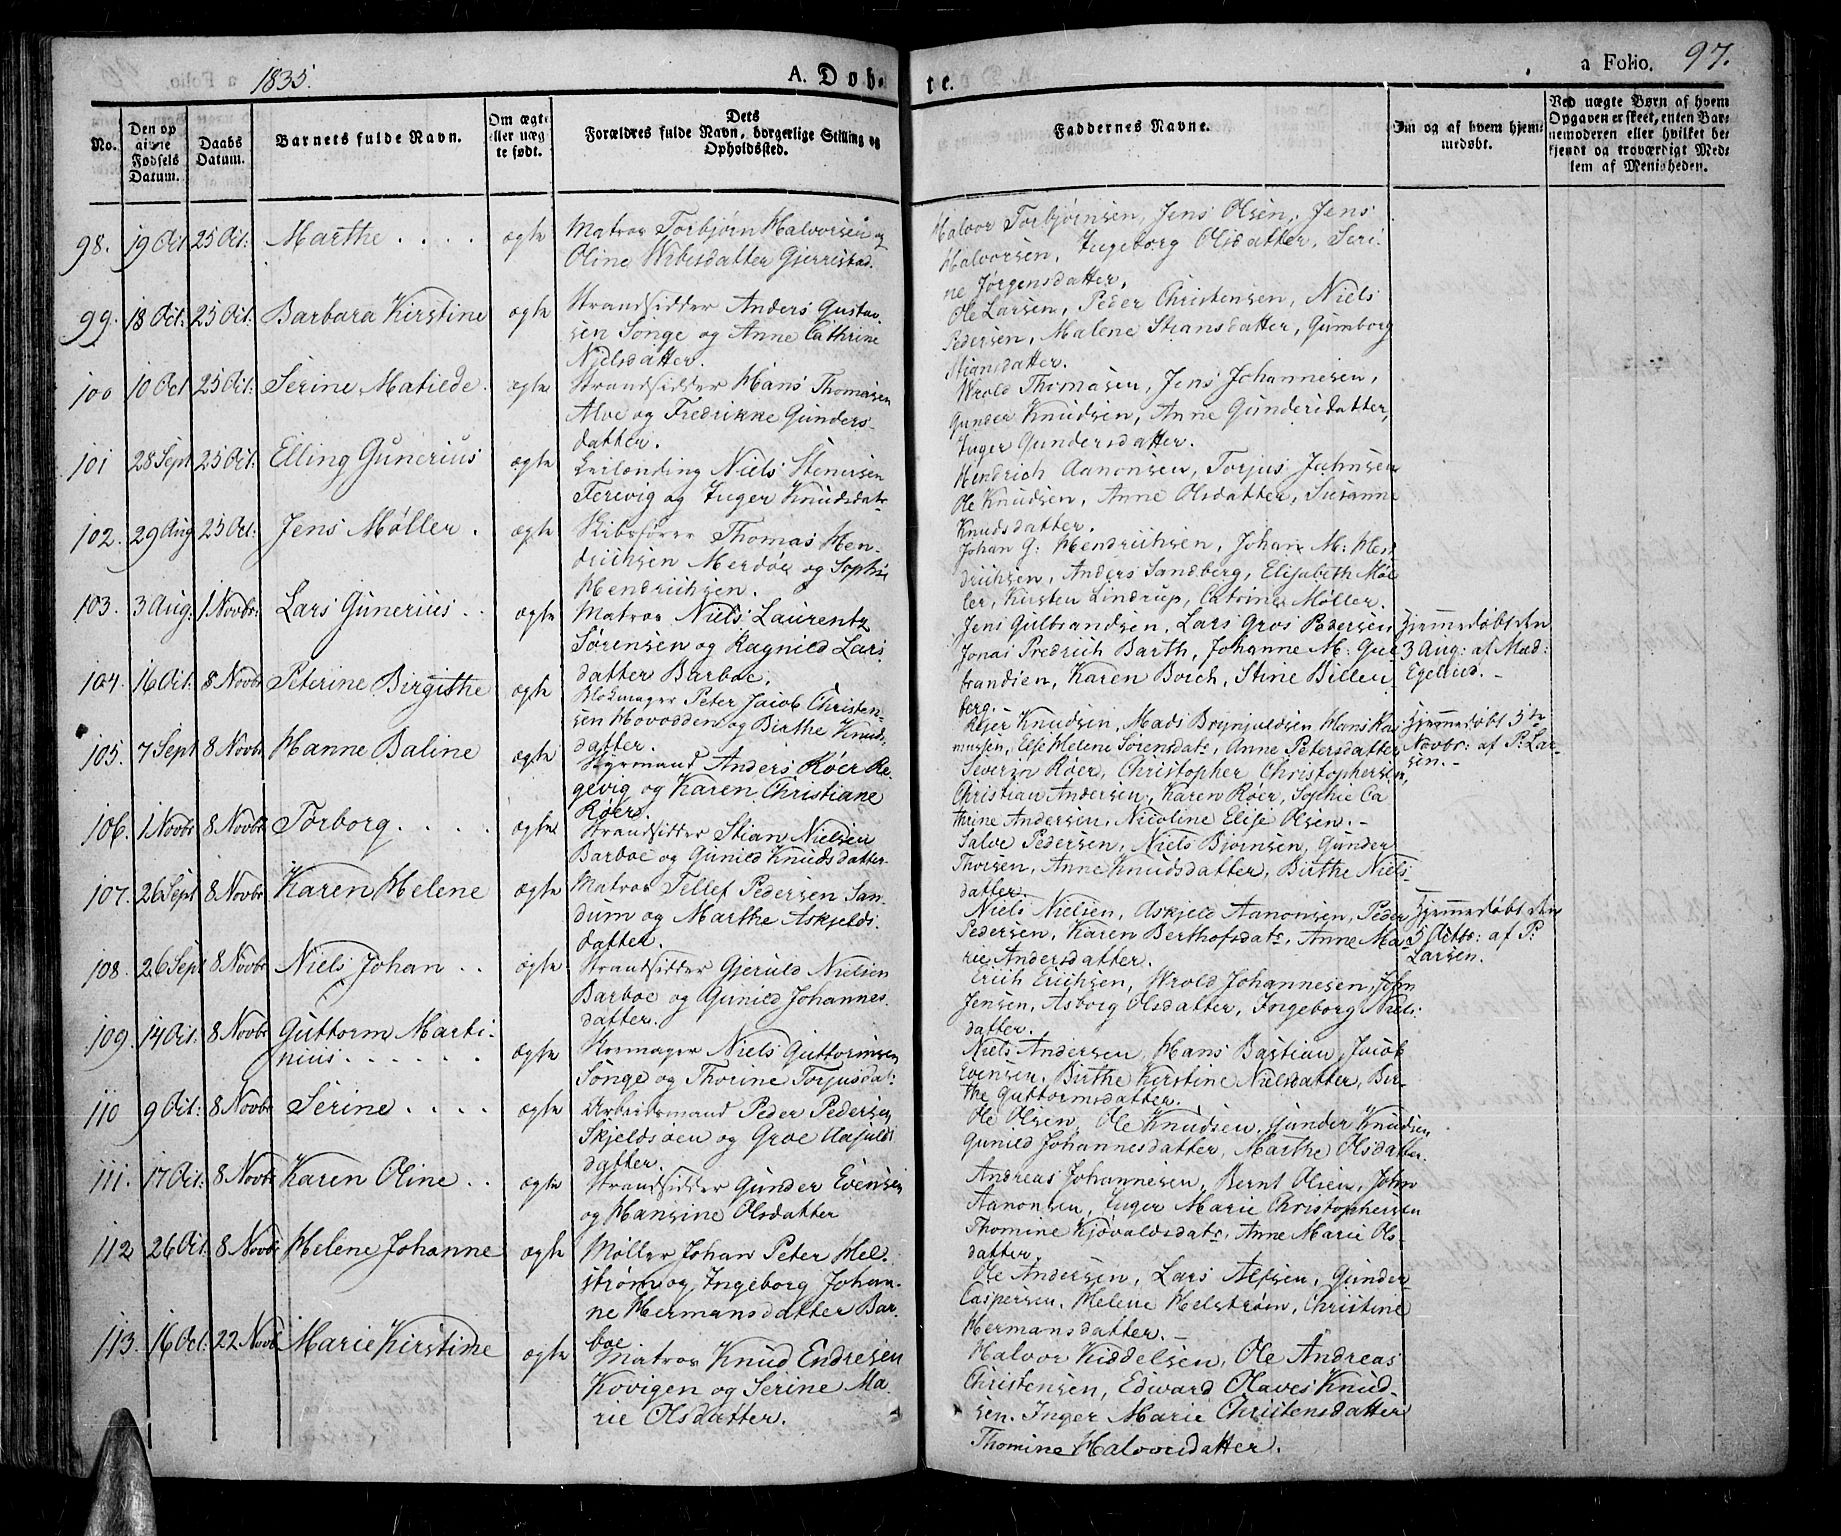 1835.
A. Døb-
te.
a Folio. 97.
No.
Den op
givne
Fødsels
Datum.
Daabs
Datum.
Barnets fulde Navn.
Om ægte
eller uæg
te født.
Dets
Forældres fulde Navn, borgerlige Stilling og
Opholdssted.
Faddernes Navne.
Om og af hvem hjem-
medøbt.
Ved uægte Børn af hvem
Opgaven er skeet, enten Bar-
nemoderen eller hvilket be-
kjendt og troværdigt Med-
lem af Menigheden.
98. 19 Oct 25 Oct: Marthe . . . . ægte
Matros Torbjørn Halvorsen og
Oline Wibisdatter Gjerrestad.
Halvor Torbjørnsen, Jens Olsen, Jens
Halvorsen, Ingeborg Olsdatter, Seri-
ne Jørgensdatter.
99. 18 Oct: 25 Oct: Barbara Kirstine ægte
Strandsidder Anders Gustav
sen Songe og Anne Cathrine
Nielsdatter.
Ole Larsen, Peder Christensen, Niels
Pedersen, Malene Stiansdatter, Gumborg
Stiansdatter.
100 10 Oct 25 Oct: Serine Matilde. ægte
Strandsidder Hans Thomasen
Alve og Fredrikke Gunders-
datter.
Wrold Thomasen, Jens Johannesen,
Gunder Knudsen, Anne Gundersdatter,
Inger Gundersdatter.
101 28 Sept 25 Oct: Elling Gunerius ægte
Qvilænding Niels Stenersen
Terevig og Inger Knudsdatr
Hendrich Aanonsen, Torjus Jahnsen
Ole Knudsen, Anne Olsdatter, Susanne
Knudsdatter.
102. 29 Aug 25 Oct: Jens Møller . ægte
Skibsfører Thomas Hen-
drichsen Merdøe og Sophie
Hendrichsen.
Johan G: Hendrichsen, Johan M: Hen
drichsen, Anders Sandberg, Elisabeth Møl
ler, Kirsten Lindrup, Catrine Møller.
103. 3 Aug: 1 Novbr: Lars Gunerius . . ægte
Matros Niels Laurentz
Sørensen og Ragnild Lars
datter Barboe.
Jens Gulbrandsen, Lars Gros Pedersen
Jonas Fredrich Barth, Johanne M: Gul
brandsen, Karen Borch, Stine Billen-
berg.
Hjemmedøbt den
3 Aug: af Mad:
Egelund. -
104. 16 Oct: 8 Novbr Peterine Birgithe ægte
Blokmager Peter Jacob Christen-
sen Hovodden og Birthe Knuds
datter.
Rejer Knudsen, Mads Brynjuldsen Hans Ra
mussen, Else Helene Sørensdatr, Anne Petersdatter
Hjemmedøbt 5te
Novbr: af P: Lar-
sen. -
105. 7 Sept 8 Novbr Hanne Baline ægte
Styrmand Anders Røer Re
gevig og Karen Christiane
Røer.
Severin Røer, Christopher Christophersen,
Christian Andersen, Karen Røer, Sophie Ca
thrine Andersen, Nicoline Elise Olsen. -
106. 1 Novbr 8 Novbr Torborg. . . . . ægte
Strandsidder Stian Nielsen
Barboe og Gunild Knudsdatter
Salve Pedersen, Niels Bjørnsen, Gunder
Thorsen, Anne Knudsdatter, Birthe Niels-
datter.
107. 26 Sept 8 Novbr Karen Helene ægte
Matros Tellef Pedersen San-
dum og Marthe Askjelds.
datter.
Niels Nielsen, Askjeld Aanonsen, Peder
Pedersen, Karen Berthofsdatr, Anne Ma-
rie Andersdatter.
Hjemmedøbt den
5 Octbr: af P:
Larsen.
108. 26 Sept 8 Novbr Niels Johan . . ægte
Strandsidder Gjeruld Nielsen
Barboe og Gunild Johannes
datter.
Erich Erichsen, Wrold Johannesen, John
Jensen, Asborg Olsdatter, Ingeborg Niels-
datter.
109. 14 Oct: 8 Novbr Guttorm Marti-
nius . . . . . . ægte
Kormager Niels Guttormsen
Songe og Thorine Torjusdat:
Niels Andersen, Hans Bastian, Jacob
Evensen, Birthe Kirstine Nielsdatter, Bir-
the Guttormsdatter.
110 9 Oct: 8 Novbr Serine . . . . ægte
Arbeidsmand Peder Pedersen
Skjeldsøen og Groe
datter.
Ole Olsen, Ole Knudsen, Gunder Knudsen
Gunild Johannesdatter, Marthe Olsdatter.
111. 17 Oct: 8 Novbr Karen Oline . . ægte
Strandsidder Gunder Evensen
og Hansine Olsdatter
Andreas Johannesen, Bernt Olsen, John
Aanonsen, Inger Marie Christophersen
Thomine Kjøvaldsdatr, Anne Marie Ols-
datter.
112 26 Oct: 8 Novbr Helene Johanne ægte
Møller Johan Peter Hel-
strøm og Ingeborg Johan-
ne Hermansdatter Bar-
boe
Ole Andersen, Lars Alfsen, Gunder
Caspersen, Helene Helstrøm, Christine
Hermansdatter. -
113. 16 Oct. 22 Novbr Marie Kirstine ægte
Matros Knud Endresen
Kovigen og Serine Ma-
rie Olsdatter.
Halvor Kiddelsen, Ole Andreas
Christensen, Edward Olaves Knud-
sen. Inger Marie Christensdatter
Thomine Halvorsdatter.